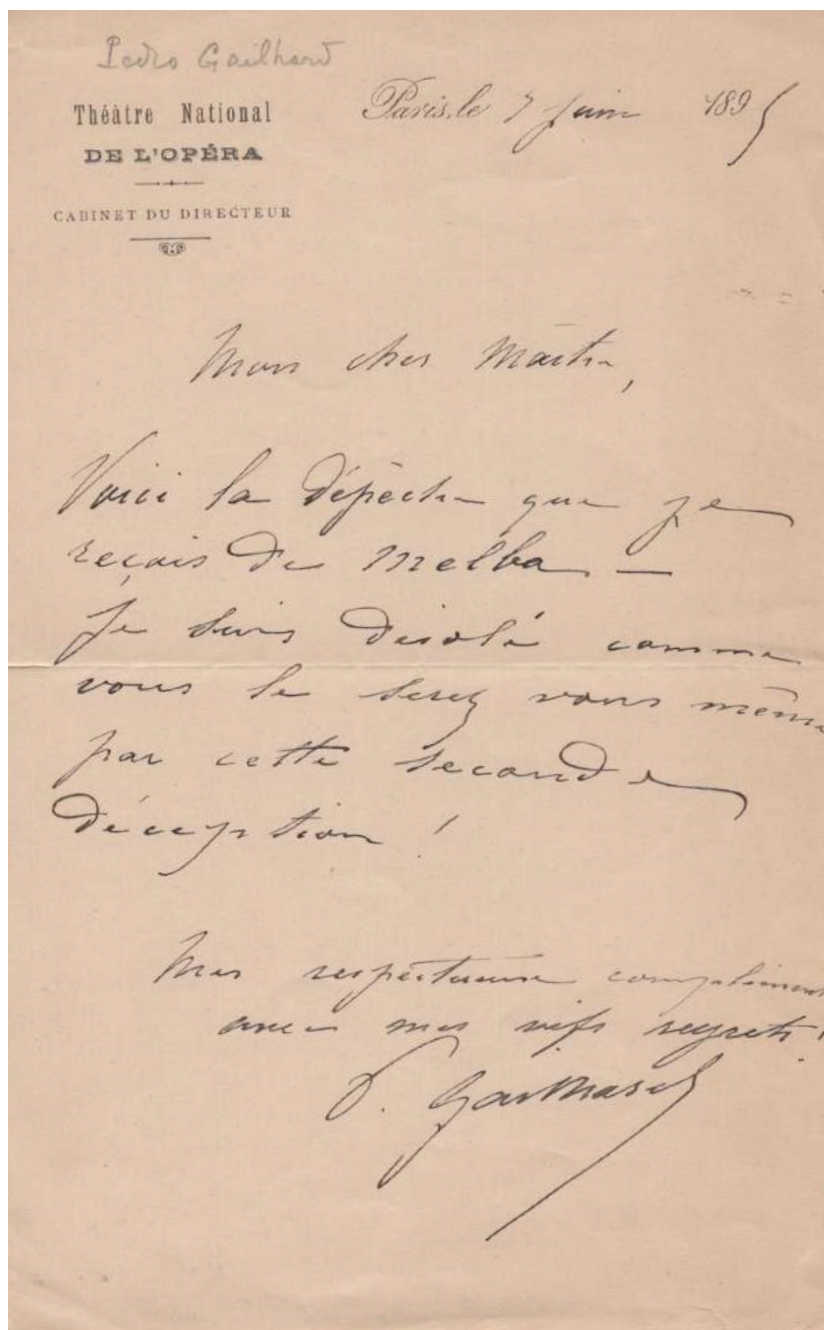 Pedro Gailhard
Théâtre National
DE L'OPÉRA
CABINET DU DIRECTEUR
Paris, le 7 Juin 1895
Mon cher Maître,
Voici la dépêche que je
reçois de Melba —
Je suis désolé comme
vous le serez vous même
par cette seconde
déception !
Mes respectueux compliments
avec mes vifs regrets !
P. Gailhard